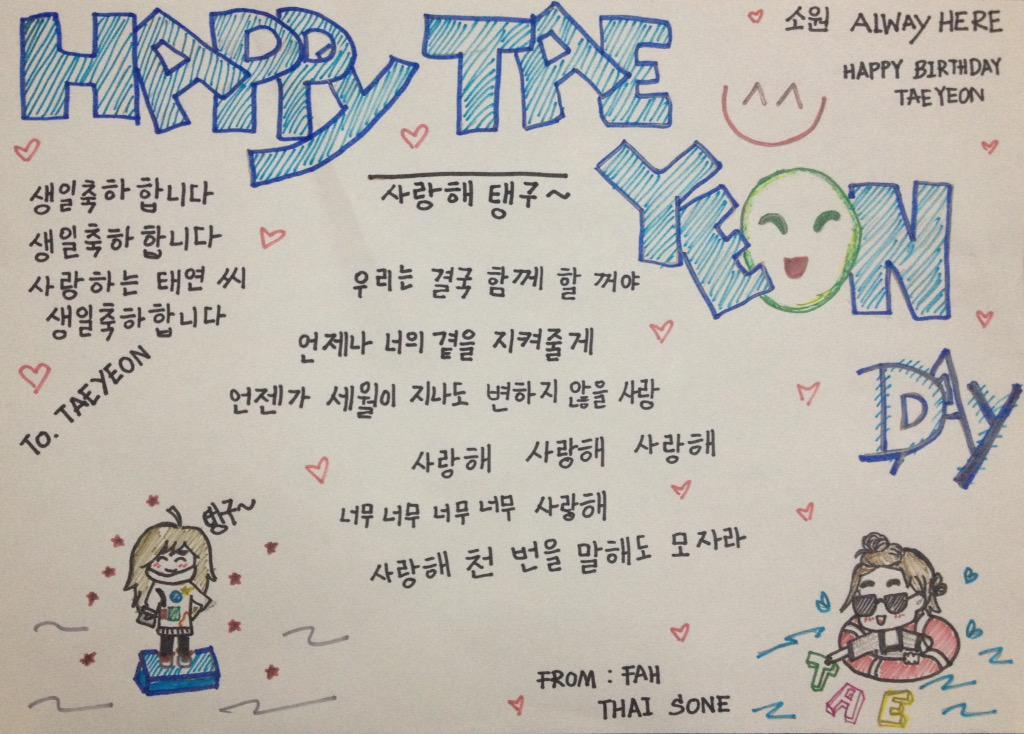 HAPPY TAE
YEON
DAY
소원 ALWAY HERE
HAPPY BIRTHDAY
TAEYEON
생일축하합니다
생일축하합니다
사랑하는 태연 씨
생일축하합니다
TO. TAEYEON
사랑해 탱구~
우리는 결국 함께 할 꺼야
언제나 너의 곁을 지켜줄게
언젠가 세월이 지나도 변하지 않을 사랑
사랑해 사랑해 사랑해
너무 너무 너무 너무 사랑해
사랑해 천 번을 말해도 모자라
탱구~
TAE
FROM : FAH
THAI SONE